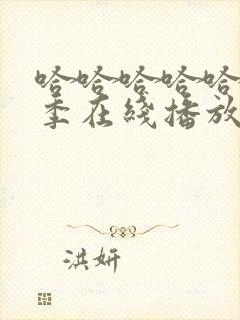 哈哈哈哈哈
季在线播放
洪妍